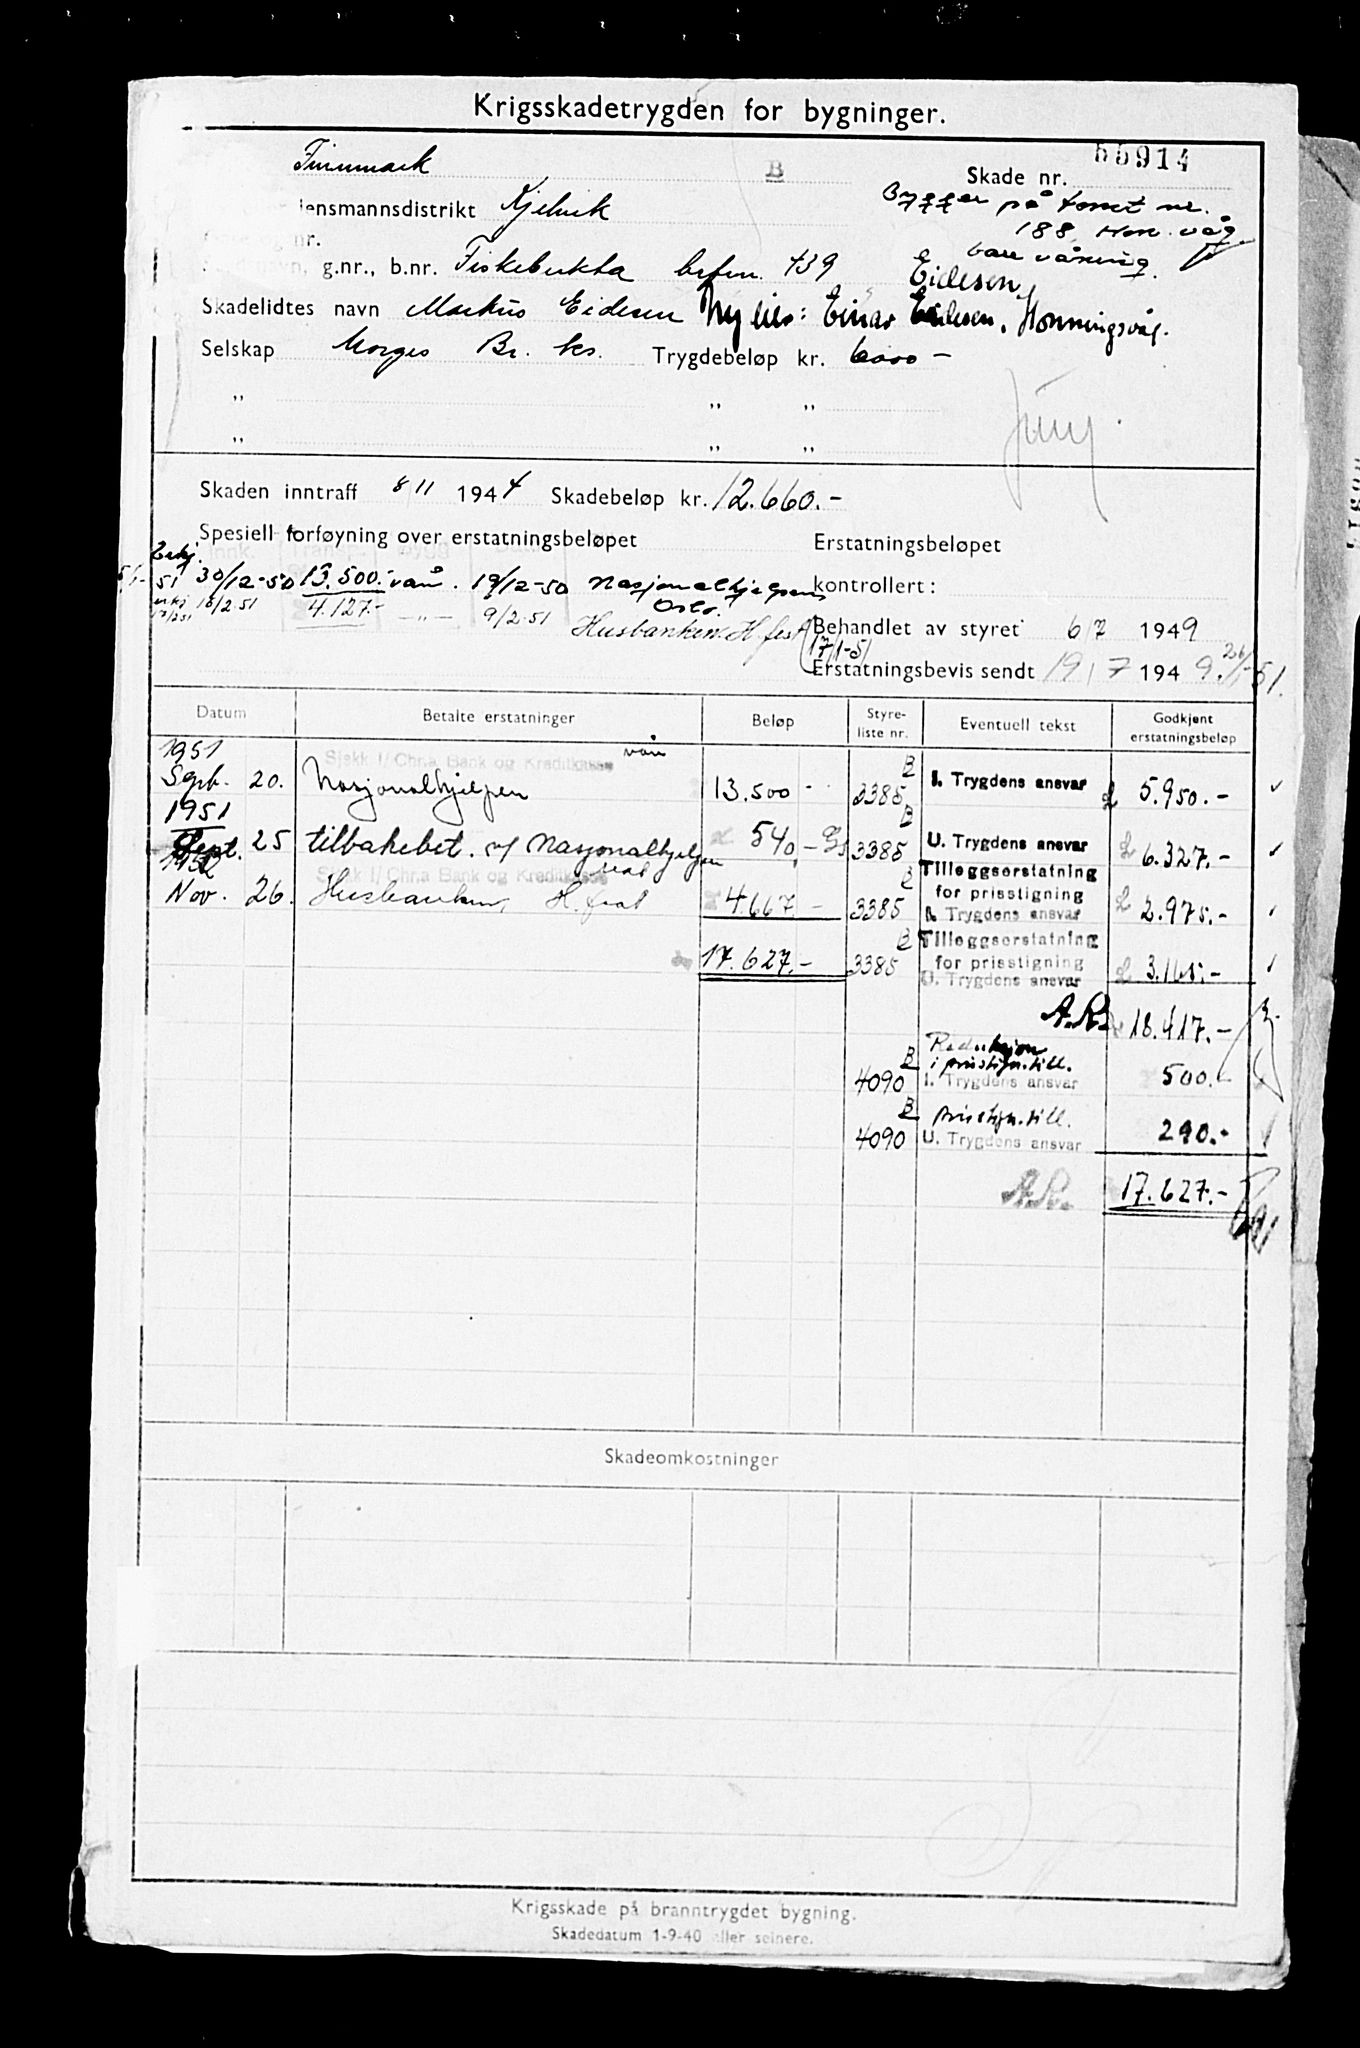 Krigsskadetrygden for bygninger.
Finnmark B Skade nr. 55914
lensmannsdistrikt Kjelvik
Bygger på tomt nr.
188 Hon. våg.
bare våning.
nr.
g.nr., b.nr. Fiskebukta brfnr. 439
Eidesen
Skadelidtes navn Markus Eidesen Ny eier: Einar Eidesen, Honningsvåg.
Selskap Norges Br. ks. Trygdebeløp kr. 6000 -
" " "
" " "
Skaden inntraff 8/11 1944 Skadebeløp kr. 12.660.-
Spesiell forføyning over erstatningsbeløpet
Erstatningsbeløpet
kontrollert:
30/12-50 13.500.- vån. 19/12-50 Nasjonalhjelpen
Oslo.
18/2.51 4.127.- - " - 9/2.51 Husbanken H.fest
Behandlet av styret 6/7 1949
17/1-51
Erstatningsbevis sendt 19/7 1949. 26/ -51.
Datum Betalte erstatninger Beløp Styre-liste nr. Eventuell tekst Godkjent erstatningsbeløp
1951 Sjekk I/ Chr.a Bank og Kreditkasse vån
Sept. 20. Nasjonalhjelpen 13.500 - B 3385 I. Trygdens ansvar 5.950.-
1951
Sept. 25 tilbakebet. af Nasjonalhjelpen 540,- B 3385 U. Trygdens ansvar 6.327.-
1952 Sjekk I/ Chr.a Bank og Kreditkasse
Nov. 26. Husbanken, H.fest 4.667 - B 3385 Tilleggserstatning
for prisstigning
I. Trygdens ansvar 2.975.-
17.627.- B 3385 Tilleggserstatning
for prisstigning
U. Trygdens ansvar 3.165.-
A.R. 18.417.-
Reduksjon
i prisstign.till.
B 4090 I. Trygdens ansvar 500.-
B prisstign.till.
4090 U. Trygdens ansvar 290.-
A.R. 17.627.-
Skadeomkostninger
Krigsskade på branntrygdet bygning.
Skadedatum 1-9-40 eller seinere.